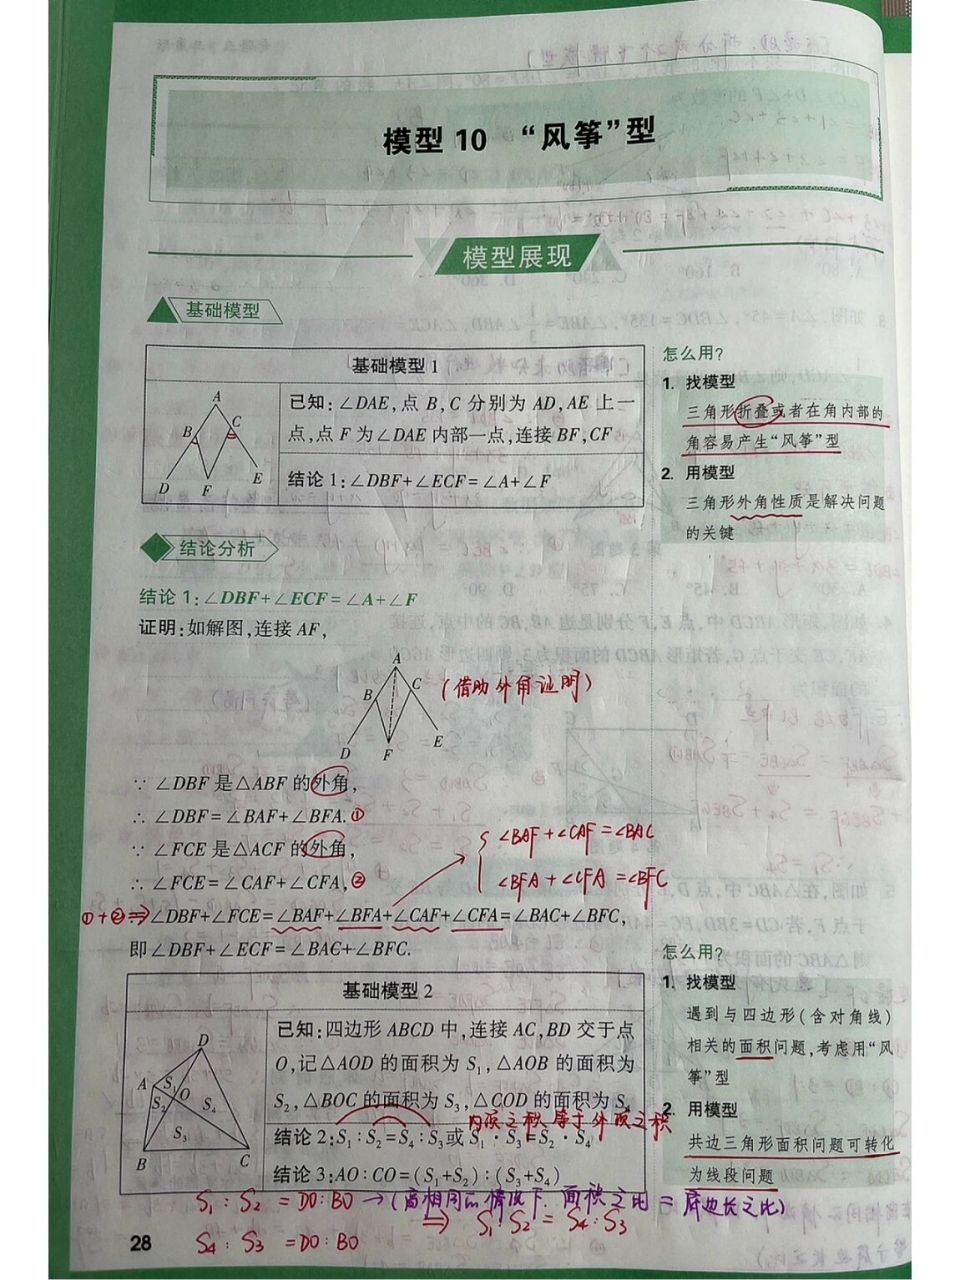 模型 10 “风筝”型
模型展现
基础模型
基础模型 1
A
B
C
D
F
E
已知:∠DAE,点 B,C 分别为 AD,AE 上一
点,点 F 为∠DAE 内部一点,连接 BF,CF
结论 1:∠DBF+∠ECF=∠A+∠F
怎么用?
1. 找模型
三角形折叠或者在角内部的
角容易产生“风筝”型
2. 用模型
三角形外角性质是解决问题
的关键
结论分析
结论 1:∠DBF+∠ECF=∠A+∠F
证明:如解图,连接 AF,
A
B
C
D
F
E
(借助外角证明)
∵ ∠DBF 是△ABF 的外角,
∴ ∠DBF=∠BAF+∠BFA.①
∵ ∠FCE 是△ACF 的外角,
∴ ∠FCE=∠CAF+∠CFA,②
∠BAF+∠CAF=∠BAC
∠BFA+∠CFA=∠BFC
①+②⇒∠DBF+∠FCE=∠BAF+∠BFA+∠CAF+∠CFA=∠BAC+∠BFC,
即∠DBF+∠ECF=∠BAC+∠BFC.
基础模型 2
D
A
S₁
O
S₂
S₄
S₃
B
C
已知:四边形 ABCD 中,连接 AC,BD 交于点
O,记△AOD 的面积为 S₁,△AOB 的面积为
S₂,△BOC 的面积为 S₃,△COD 的面积为 S₄
内项之积等于外项之积
结论 2:S₁:S₂=S₄:S₃或 S₁·S₃=S₂·S₄
结论 3:AO:CO=(S₁+S₂):(S₃+S₄)
怎么用?
1. 找模型
遇到与四边形(含对角线)
相关的面积问题,考虑用“风
筝”型
2. 用模型
共边三角形面积问题可转化
为线段问题
S₁:S₂=DO:BO→(高相同的情况下.面积之比=底边长之比)
⇒ S₁:S₂=S₄:S₃
S₄:S₃=DO:BO
28